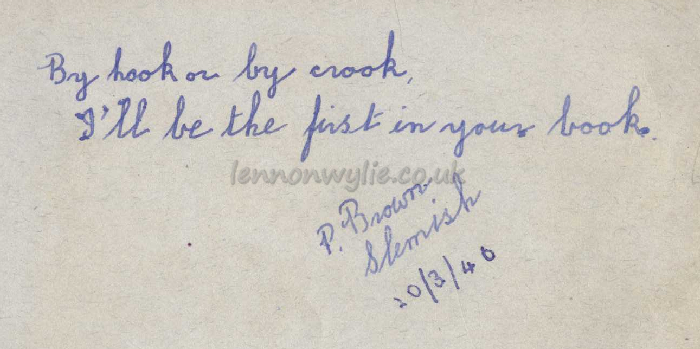 By hook or by crook,
I'll be the first in your book.
lennonwylie.co.uk
P. Brown
Slemish
20/3/40